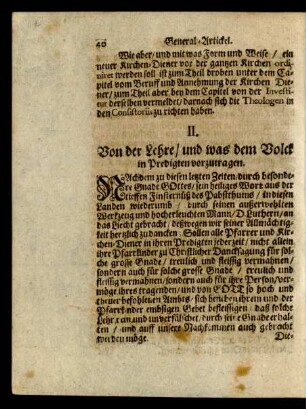 40 General-Artickel.
Wie aber/ und mit was Form und Weise / ein
neuer Kirchen-Diener vor der gantzen Kirchen ordi-
niret werden soll ist zum Theil droben unter dem Ca-
pitel vom Beruff und Annehmung der Kirchen Die-
ner/ zum Theil aber bey dem Capitel von der Investi-
tur derselben vermeldet/ darnach sich die Theologen in
den Consistoriis zu richten haben.
II.
Von der Lehre/ und was dem Volck
in Predigten vorzutragen.
NAchdem zu diesen letzten Zeiten/ durch besonde-
re Gnade GOttes/ sein heiliges Wort aus der
tieffen Finsterniß des Pabstthums / in diesen
Landen wiederumb / durch seinen außerwehlten
Werckzeug und hocherleuchten Mann/ D. Luthern/ an
das Liecht gebracht/ deßwegen wir seiner Allmächtig-
keit hertzlich zu dancken. Sollen alle Pfarrer und Kir-
chen-Diener in ihren Predigten jederzeit/ nicht allein
ihre Pfarrkinder zu Christlicher Dancksagung für sol-
che grosse Gnade/ treulich und fleissig vermahnen/
sondern auch für solche grosse Gnade / treulich und
fleissig vermahnen/ sondern auch für ihre Person/ ver-
möge ihres tragenden/ und von GOTT so hoch und
theuer befohlenen Ambts/ sich beneben ihrem und der
Pfarrkinder embsigen Gebet befleissigen/ daß solche
Lehr rein und unverfälschet/ durch seine Gnade erhal-
ten / und auff unsere Nachkommen auch gebracht
werden möge. Die-